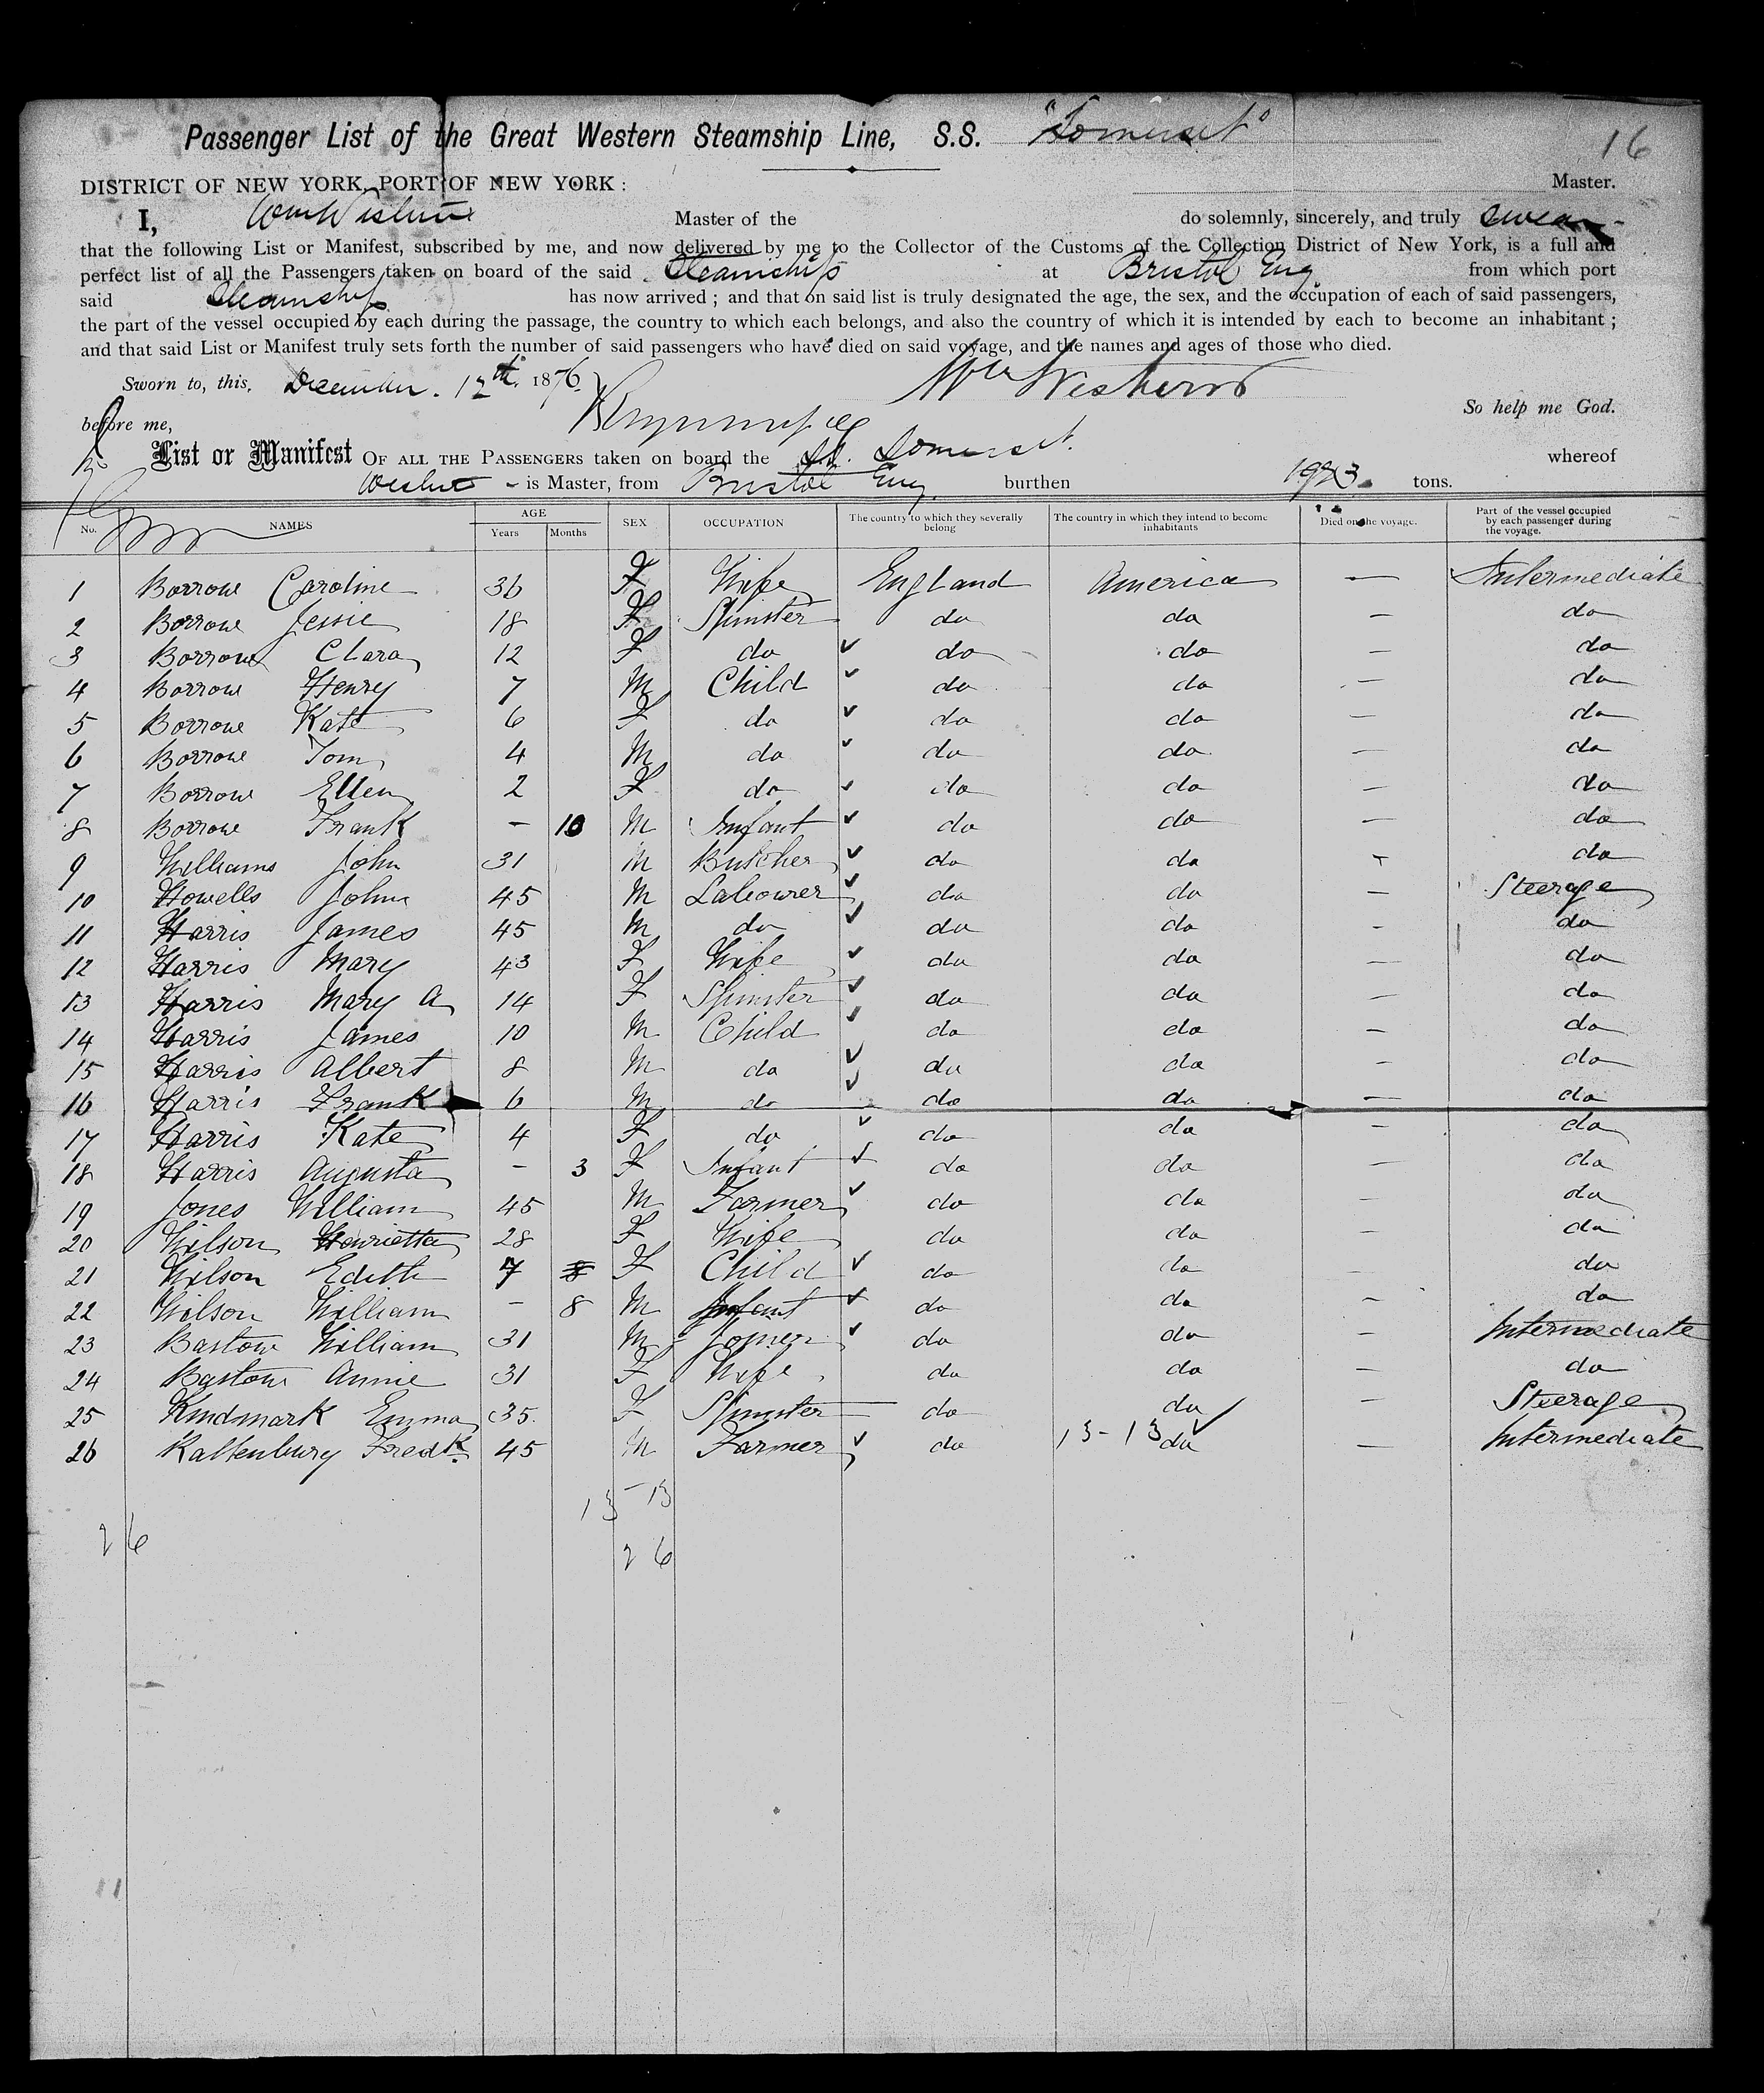 Passenger List of the Great Western Steamship Line, S.S. "Somerset"
16
DISTRICT OF NEW YORK, PORT OF NEW YORK : Master.
I, Master of the do solemnly, sincerely, and truly swear
that the following List or Manifest, subscribed by me, and now delivered by me to the Collector of the Customs of the Collection District of New York, is a full and
perfect list of all the Passengers taken on board of the said Steamship at Bristol Eng from which port
said Steamship has now arrived ; and that on said list is truly designated the age, the sex, and the occupation of each of said passengers,
the part of the vessel occupied by each during the passage, the country to which each belongs, and also the country of which it is intended by each to become an inhabitant ;
and that said List or Manifest truly sets forth the number of said passengers who have died on said voyage, and the names and ages of those who died.
Sworn to, this, December. 12th. 1876. Wm
So help me God.
before me,
List or Manifest OF ALL THE PASSENGERS taken on board the SS. Somerset. whereof
is Master, from Bristol Eng. burthen 1923 tons.
No. NAMES AGE Years Months SEX OCCUPATION The country to which they severally belong The country in which they intend to become inhabitants Died on the voyage. Part of the vessel occupied by each passenger during the voyage.
1 Borrow Caroline 36 F Wife England America — Intermediate
2 Borrow Jessie 18 F Spinster do do — do
3 Borrow Clara 12 F do ✓ do do — do
4 Borrow Henry 7 M Child ✓ do do — do
5 Borrow Kate 6 F do ✓ do do — do
6 Borrow Tom 4 M do ✓ do do — do
7 Borrow Ellen 2 F do ✓ do do — do
8 Borrow Frank — 10 M Infant ✓ do do — do
9 Williams John 31 M Butcher ✓ do do — do
10 Howells John 45 M Labourer ✓ do do — Steerage
11 Harris James 45 M do ✓ do do — do
12 Harris Mary 43 F Wife ✓ do do — do
13 Harris Mary A 14 F Spinster ✓ do do — do
14 Harris James 10 M Child ✓ do do — do
15 Harris Albert 8 M do ✓ do do — do
16 Harris Frank 6 M do ✓ do do — do
17 Harris Kate 4 F do ✓ do do — do
18 Harris Augusta — 3 F Infant ✓ do do — do
19 Jones William 45 M Farmer ✓ do do — do
20 Wilson Henrietta 28 F Wife do do — do
21 Wilson Edith 7 8 F Child ✓ do do — do
22 Wilson William — 8 M Infant ✓ do do — do
23 Bastow William 31 M Joiner ✓ do do — Intermediate
24 Bastow Annie 31 F Wife do do — do
25 Kindmark Emma 35. F Spinster do do — Steerage
26 Kaltenbury Fredk. 45 M Farmer ✓ do 13-13 ✓ do — Intermediate
13-13
26
26
11